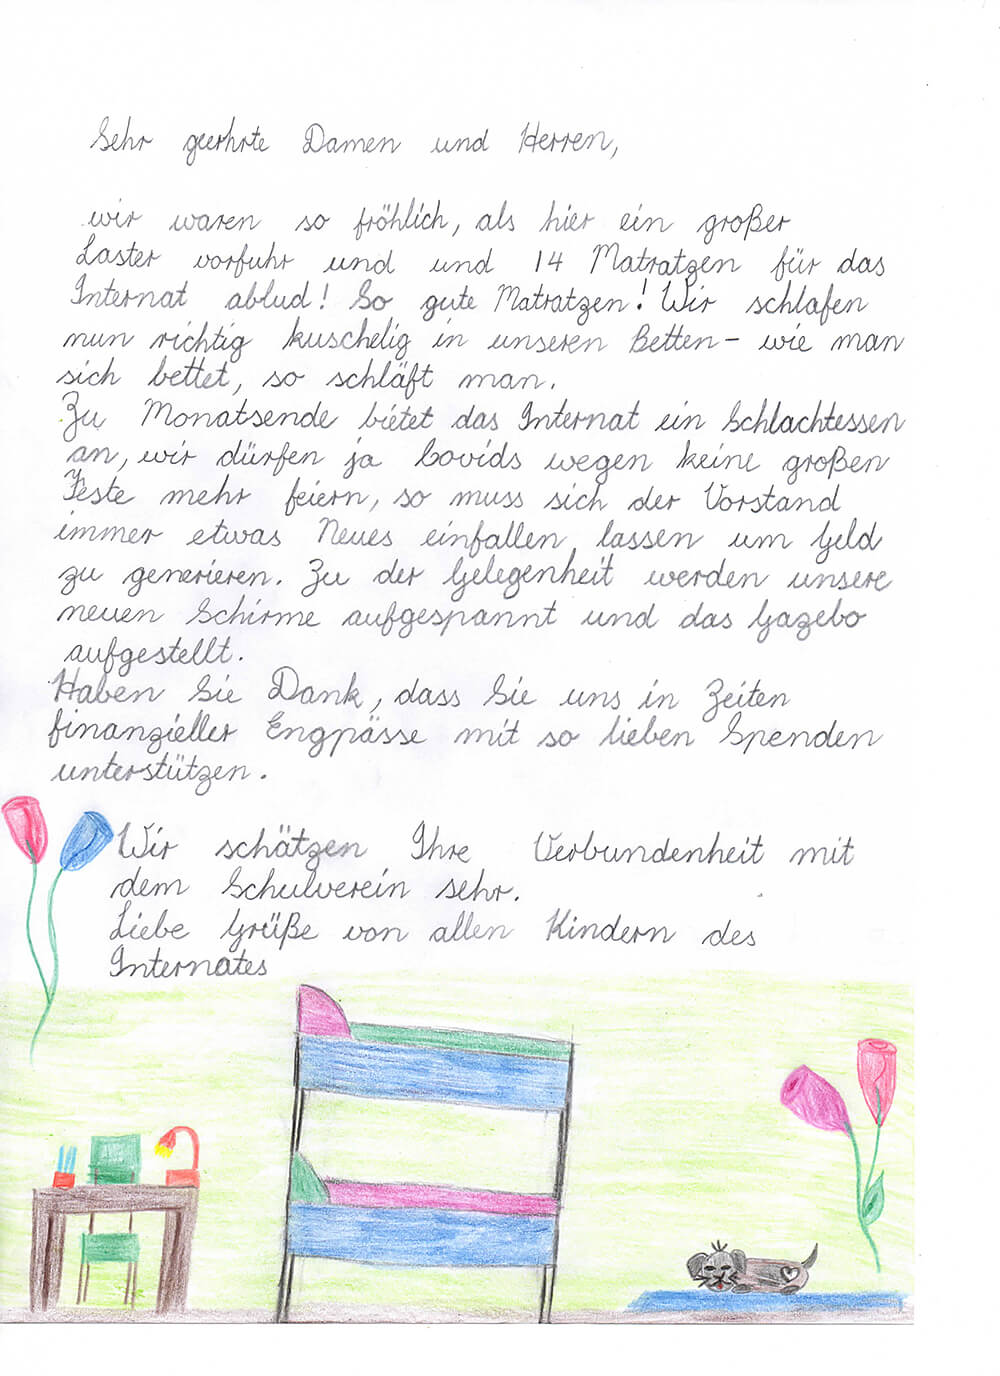 Sehr geerhrte Damen und Herren,
wir waren so fröhlich, als hier ein großer
Laster vorfuhr und und 14 Matratzen für das
Internat ablud! So gute Matratzen! Wir schlafen
nun richtig kuschelig in unseren Betten – wie man
sich bettet, so schläft man.
Zu Monatsende bietet das Internat ein Schlachtessen
an, wir dürfen ja Covids wegen keine großen
Feste mehr feiern, so muss sich der Vorstand
immer etwas Neues einfallen lassen um Geld
zu generieren. Zu der Gelegenheit werden unsere
neuen Schirme aufgespannt und das Gazebo
aufgestellt.
Haben Sie Dank, dass Sie uns in Zeiten
finanzieller Engpässe mit so lieben Spenden
unterstützen.
Wir schätzen Ihre Verbundenheit mit
dem Schulverein sehr.
Liebe Grüße von allen Kindern des
Internates